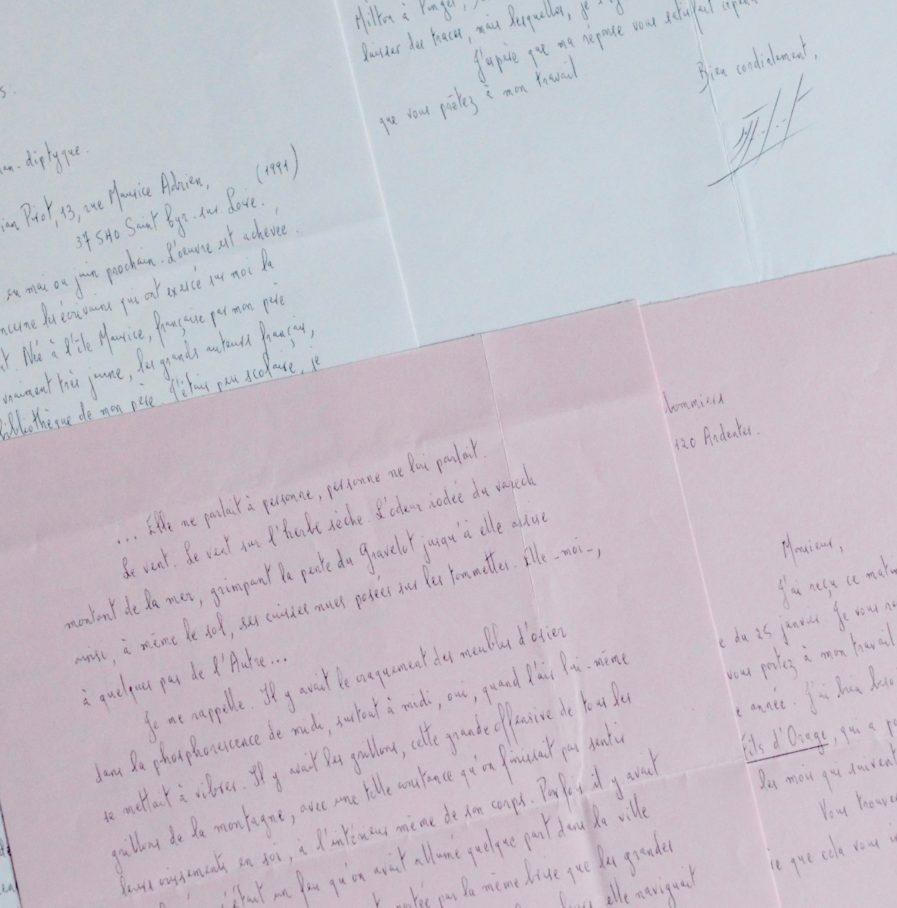 Milton à Ponge,
laisser des traces, mais lesquelles, je
J'espère que ma réponse vous satisfait
que vous prêtez à mon travail
Bien cordialement,
s.
man-diptyque.
ian Pirot, 13, rue Maurice Adrien, (1991)
37540 Saint Cyr-sur Loire.
en mai ou juin prochain. L'oeuvre est achevée.
ncerne les écrivains qui ont exercé sur moi la
t. Née à l'île Maurice, française par mon père
vraiment très jeune, les grands auteurs français,
bibliothèque de mon père. J'étais peu scolaire, je
... Elle ne parlait à personne, personne ne lui parlait.
Le vent. Le vent sur l'herbe sèche. L'odeur iodée du varech
montant de la mer, grimpant la pente du Gravelot jusqu'à elle assise
ainsi, à même le sol, ses cuisses nues posées sur les tommettes. Elle -moi-,
à quelques pas de l'Autre...
Je me rappelle. Il y avait le craquement des meubles d'osier
dans la phosphorescence de midi, surtout à midi, oui, quand l'air lui-même
se mettait à vibrer. Il y avait les grillons, cette grande offensive de tous les
grillons de la montagne, avec une telle constance qu'on finissait par sentir
leurs crissements en soi, à l'intérieur même de son corps. Parfois il y avait
c'était un feu qu'on avait allumé quelque part dans la ville
portée par la même brise que les grandes
elle naviguait
hommiers
120 Ardentes.
Monsieur,
J'ai reçu ce matin
e du 25 janvier. Je vous
vous portez à mon travail
e année. J'ai bien
fils d'Orage, qui a
les mois qui suivent
Vous trouve
ce que cela vous